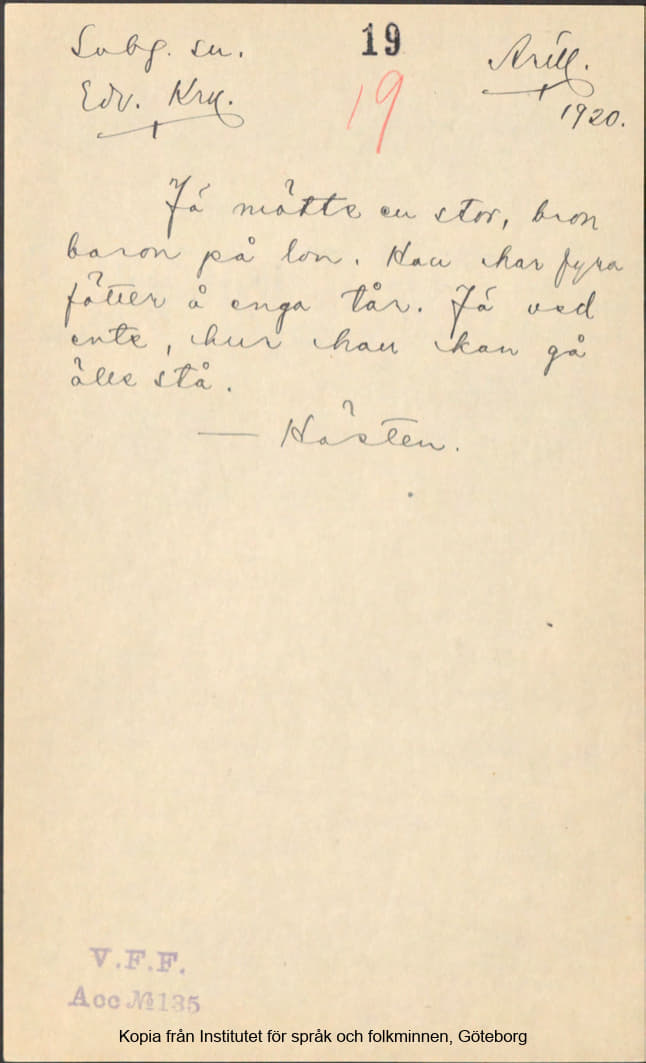 Svbg. sn.
19
Arill.
Edv. Krn.
19
1920.
Já mötte en stor, bron
baron på lon. Han har fyra
fötter å enga tår. Já ved
ente, hur han kan gå
älle stå.
— Hästen.
V.F.F.
Acc № 135
Kopia från Institutet för språk och folkminnen, Göteborg